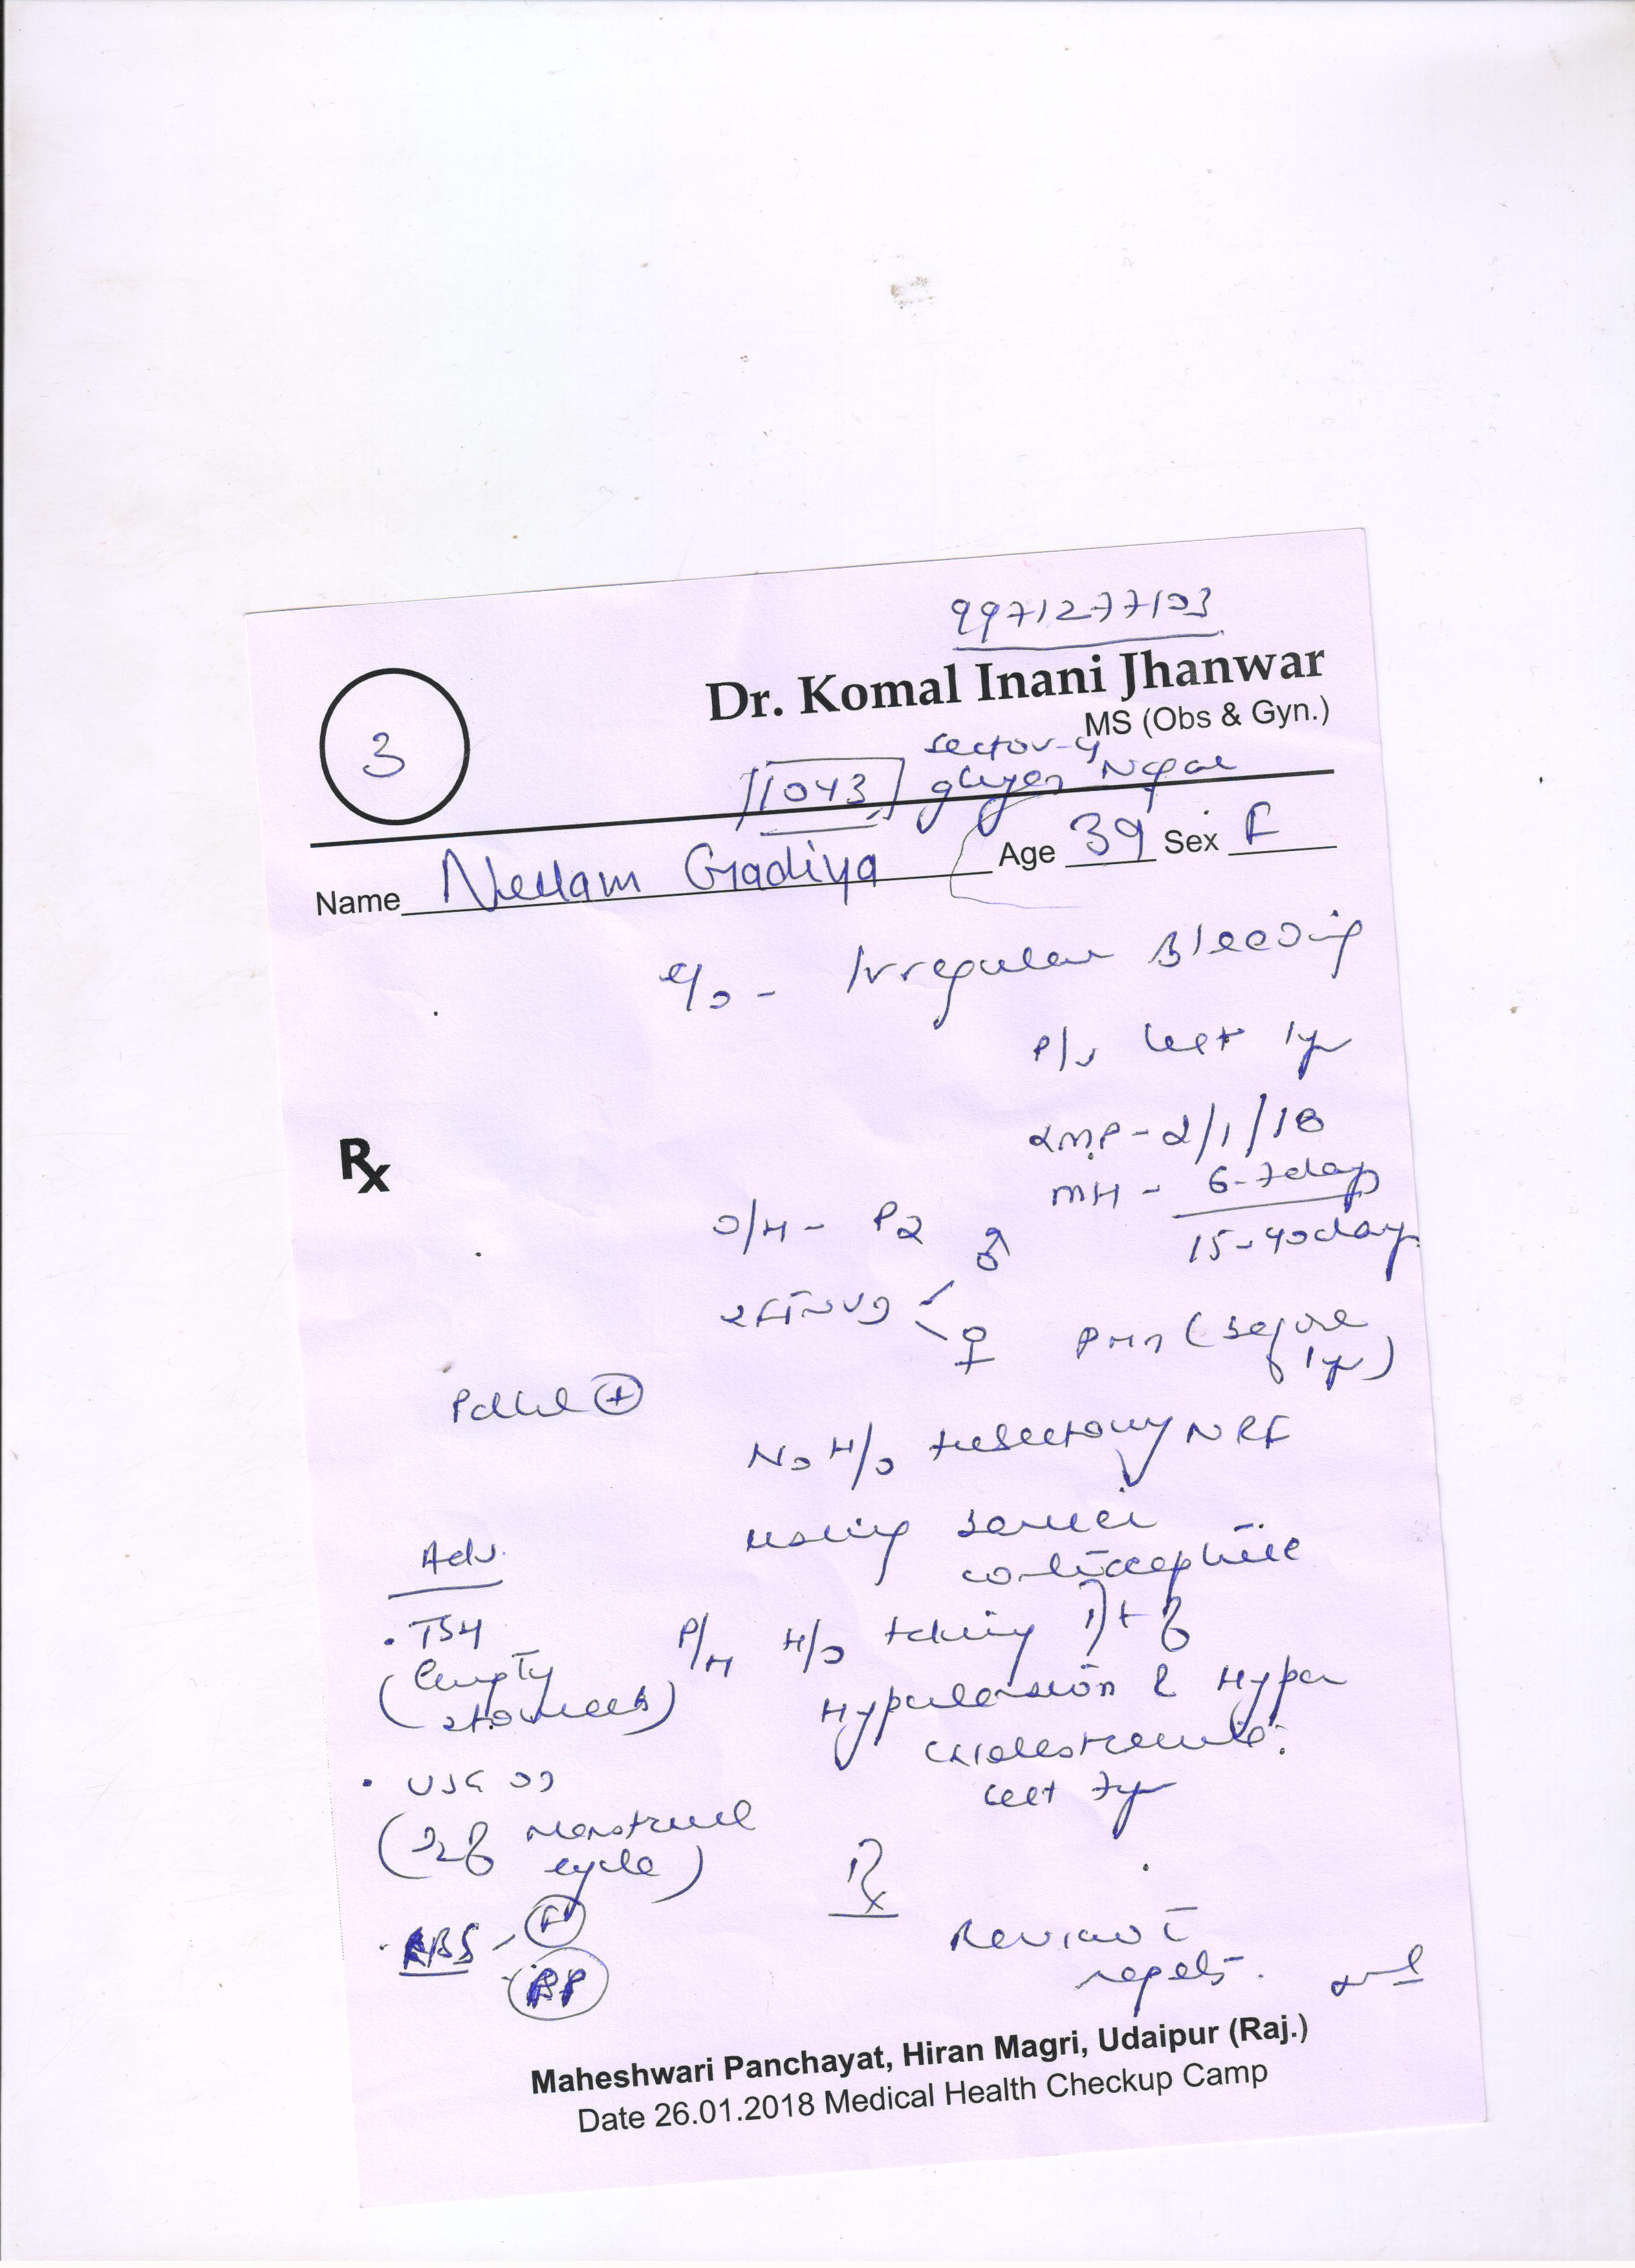 9971277103
Dr. Komal Inani Jhanwar
MS (Obs & Gyn.)
3
Sector-4
11043
Name Neelam Gadiya Age 39 Sex F
c/o - Irregular Bleeding
P/v last 1yr
LMP - 2/1/18
Rx
MH - 6-7 days
15-40 days
O/H - P2 ♂
2 FTNVD < ♀
(Before
1yr)
Pallor +
No H/o tubectomy
using barrier
contraceptive
Adv.
. TSH
(Empty
stomach)
P/H H/o taking
Hypertension & Hyper
last 7yr
. USG
menstrual
cycle)
Rx
. RBS - F
PP
Review c̄
reports.
Maheshwari Panchayat, Hiran Magri, Udaipur (Raj.)
Date 26.01.2018 Medical Health Checkup Camp